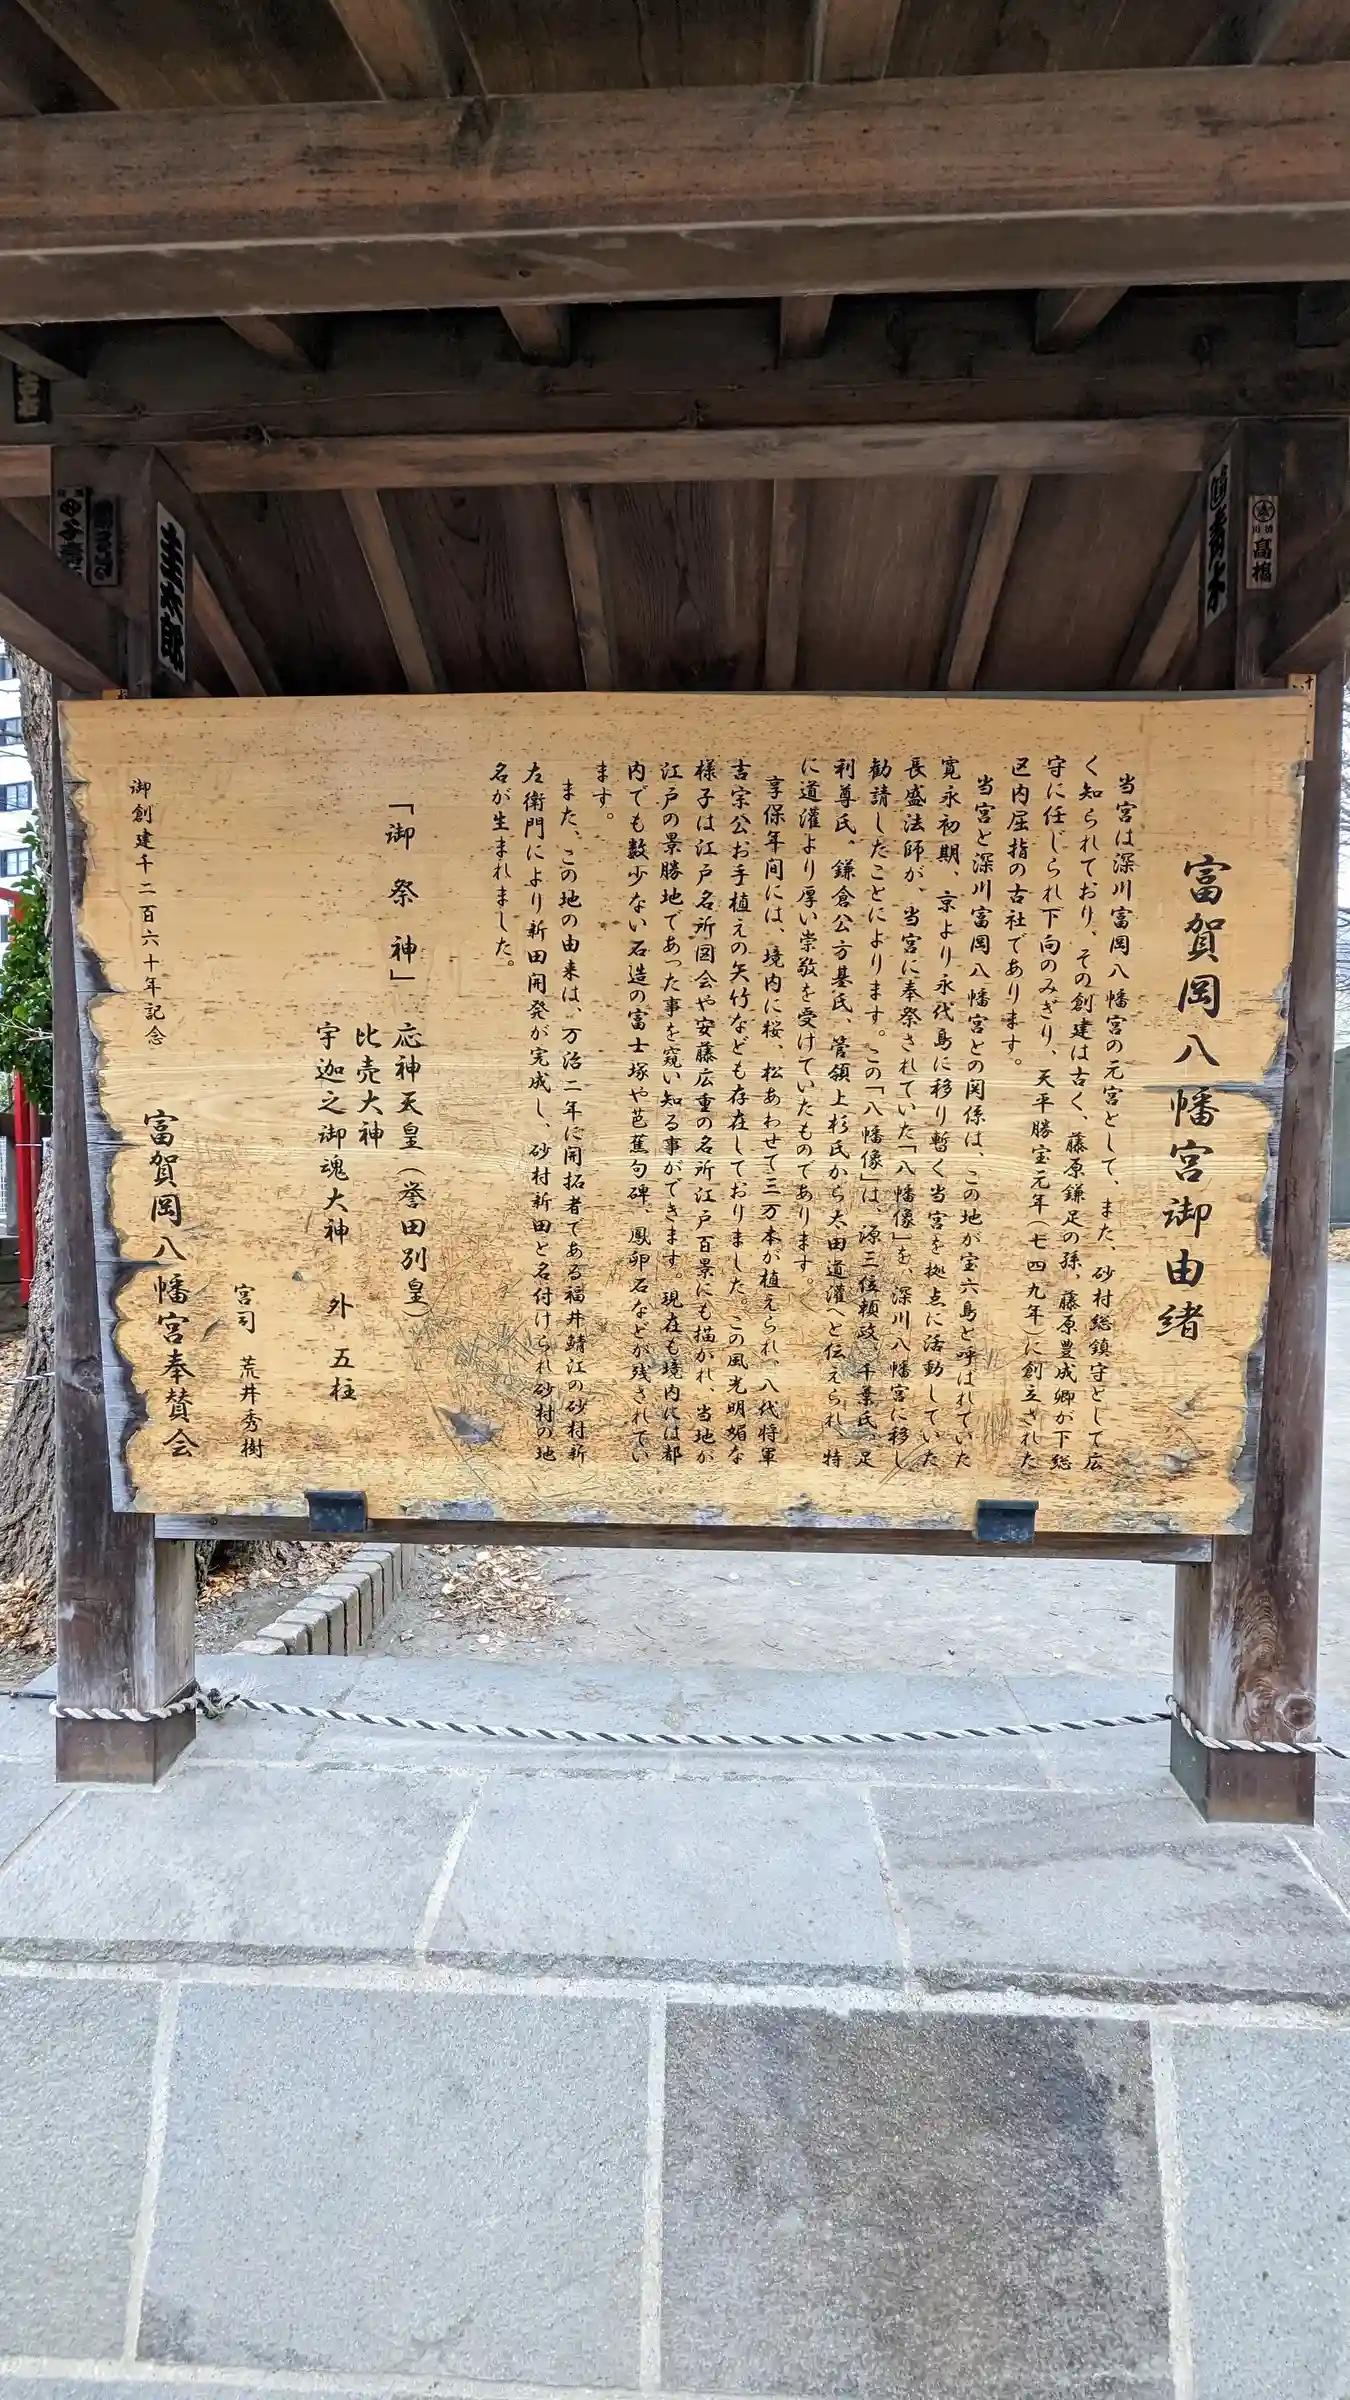 富賀岡八幡宮御由緒
当宮は深川富岡八幡宮の元宮として、また、砂村総鎮守として広
く知られており、その創建は古く、藤原鎌足の孫、藤原豊成卿が下総
守に任じられ下向のみぎり、天平勝宝元年(七四九年)に創立された
区内屈指の古社であります。
当宮と深川富岡八幡宮との関係は、この地が宝六島と呼ばれていた
寛永初期、京より永代島に移り暫く当宮を拠点に活動していた
長盛法師が、当宮に奉祭されていた「八幡像」を、深川八幡宮に移し
勧請したことによります。この「八幡像」は、源三位頼政、千葉氏、足
利尊氏、鎌倉公方基氏、管領上杉氏から太田道灌へと伝えられ、特
に道灌より厚い崇敬を受けていたものであります。
享保年間には、境内に桜、松あわせて三万本が植えられ、八代将軍
吉宗公お手植えの矢竹なども存在しておりました。この風光明媚な
様子は江戸名所図会や安藤広重の名所江戸百景にも描かれ、当地が
江戸の景勝地であった事を窺い知る事ができます。現在も境内には都
内でも数少ない石造の富士塚や芭蕉句碑、鳳卵石などが残されてい
ます。
また、この地の由来は、万治二年に開拓者である福井鯖江の砂村新
左衛門により新田開発が完成し、砂村新田と名付けられ砂村の地
名が生まれました。
「御祭神」 応神天皇(誉田別皇)
比売大神
宇迦之御魂大神 外 五柱
宮司 荒井秀樹
御創建千二百六十年記念 富賀岡八幡宮奉賛会
高橋